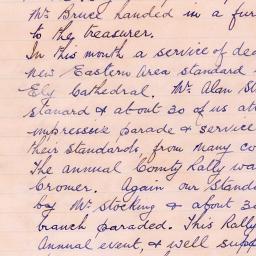 Mr Bruce handed in a fur
to the treasurer.
In this month a service of dec
new Eastern Area Standard
Ely Cathedral. Mr. Alan St
stanard & about 30 of us att
impressive parade & service
their standards, from many co
The annual County Rally was
Cromer. Again our Stand
by Mr Stocking & about 30
branch paraded. This Rally
Annual event, & well supp